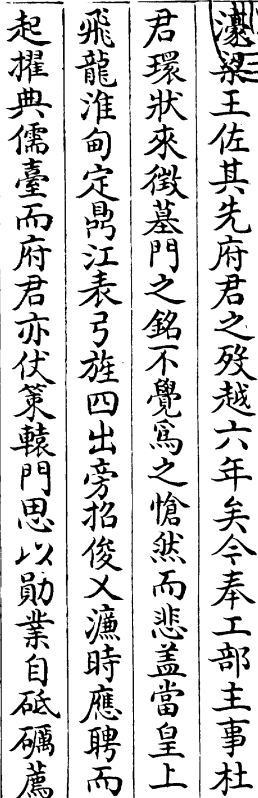 濠梁王佐其先府君之歿越六年矣今奉工部主事杜
君環狀來徵墓門之銘不覺爲之愴然而悲蓋當皇上
飛龍淮甸定鼎江表弓旌四出旁招俊乂濂時應聘而
起擢典儒臺而府君亦伏策轅門思以勛業自砥礪薦